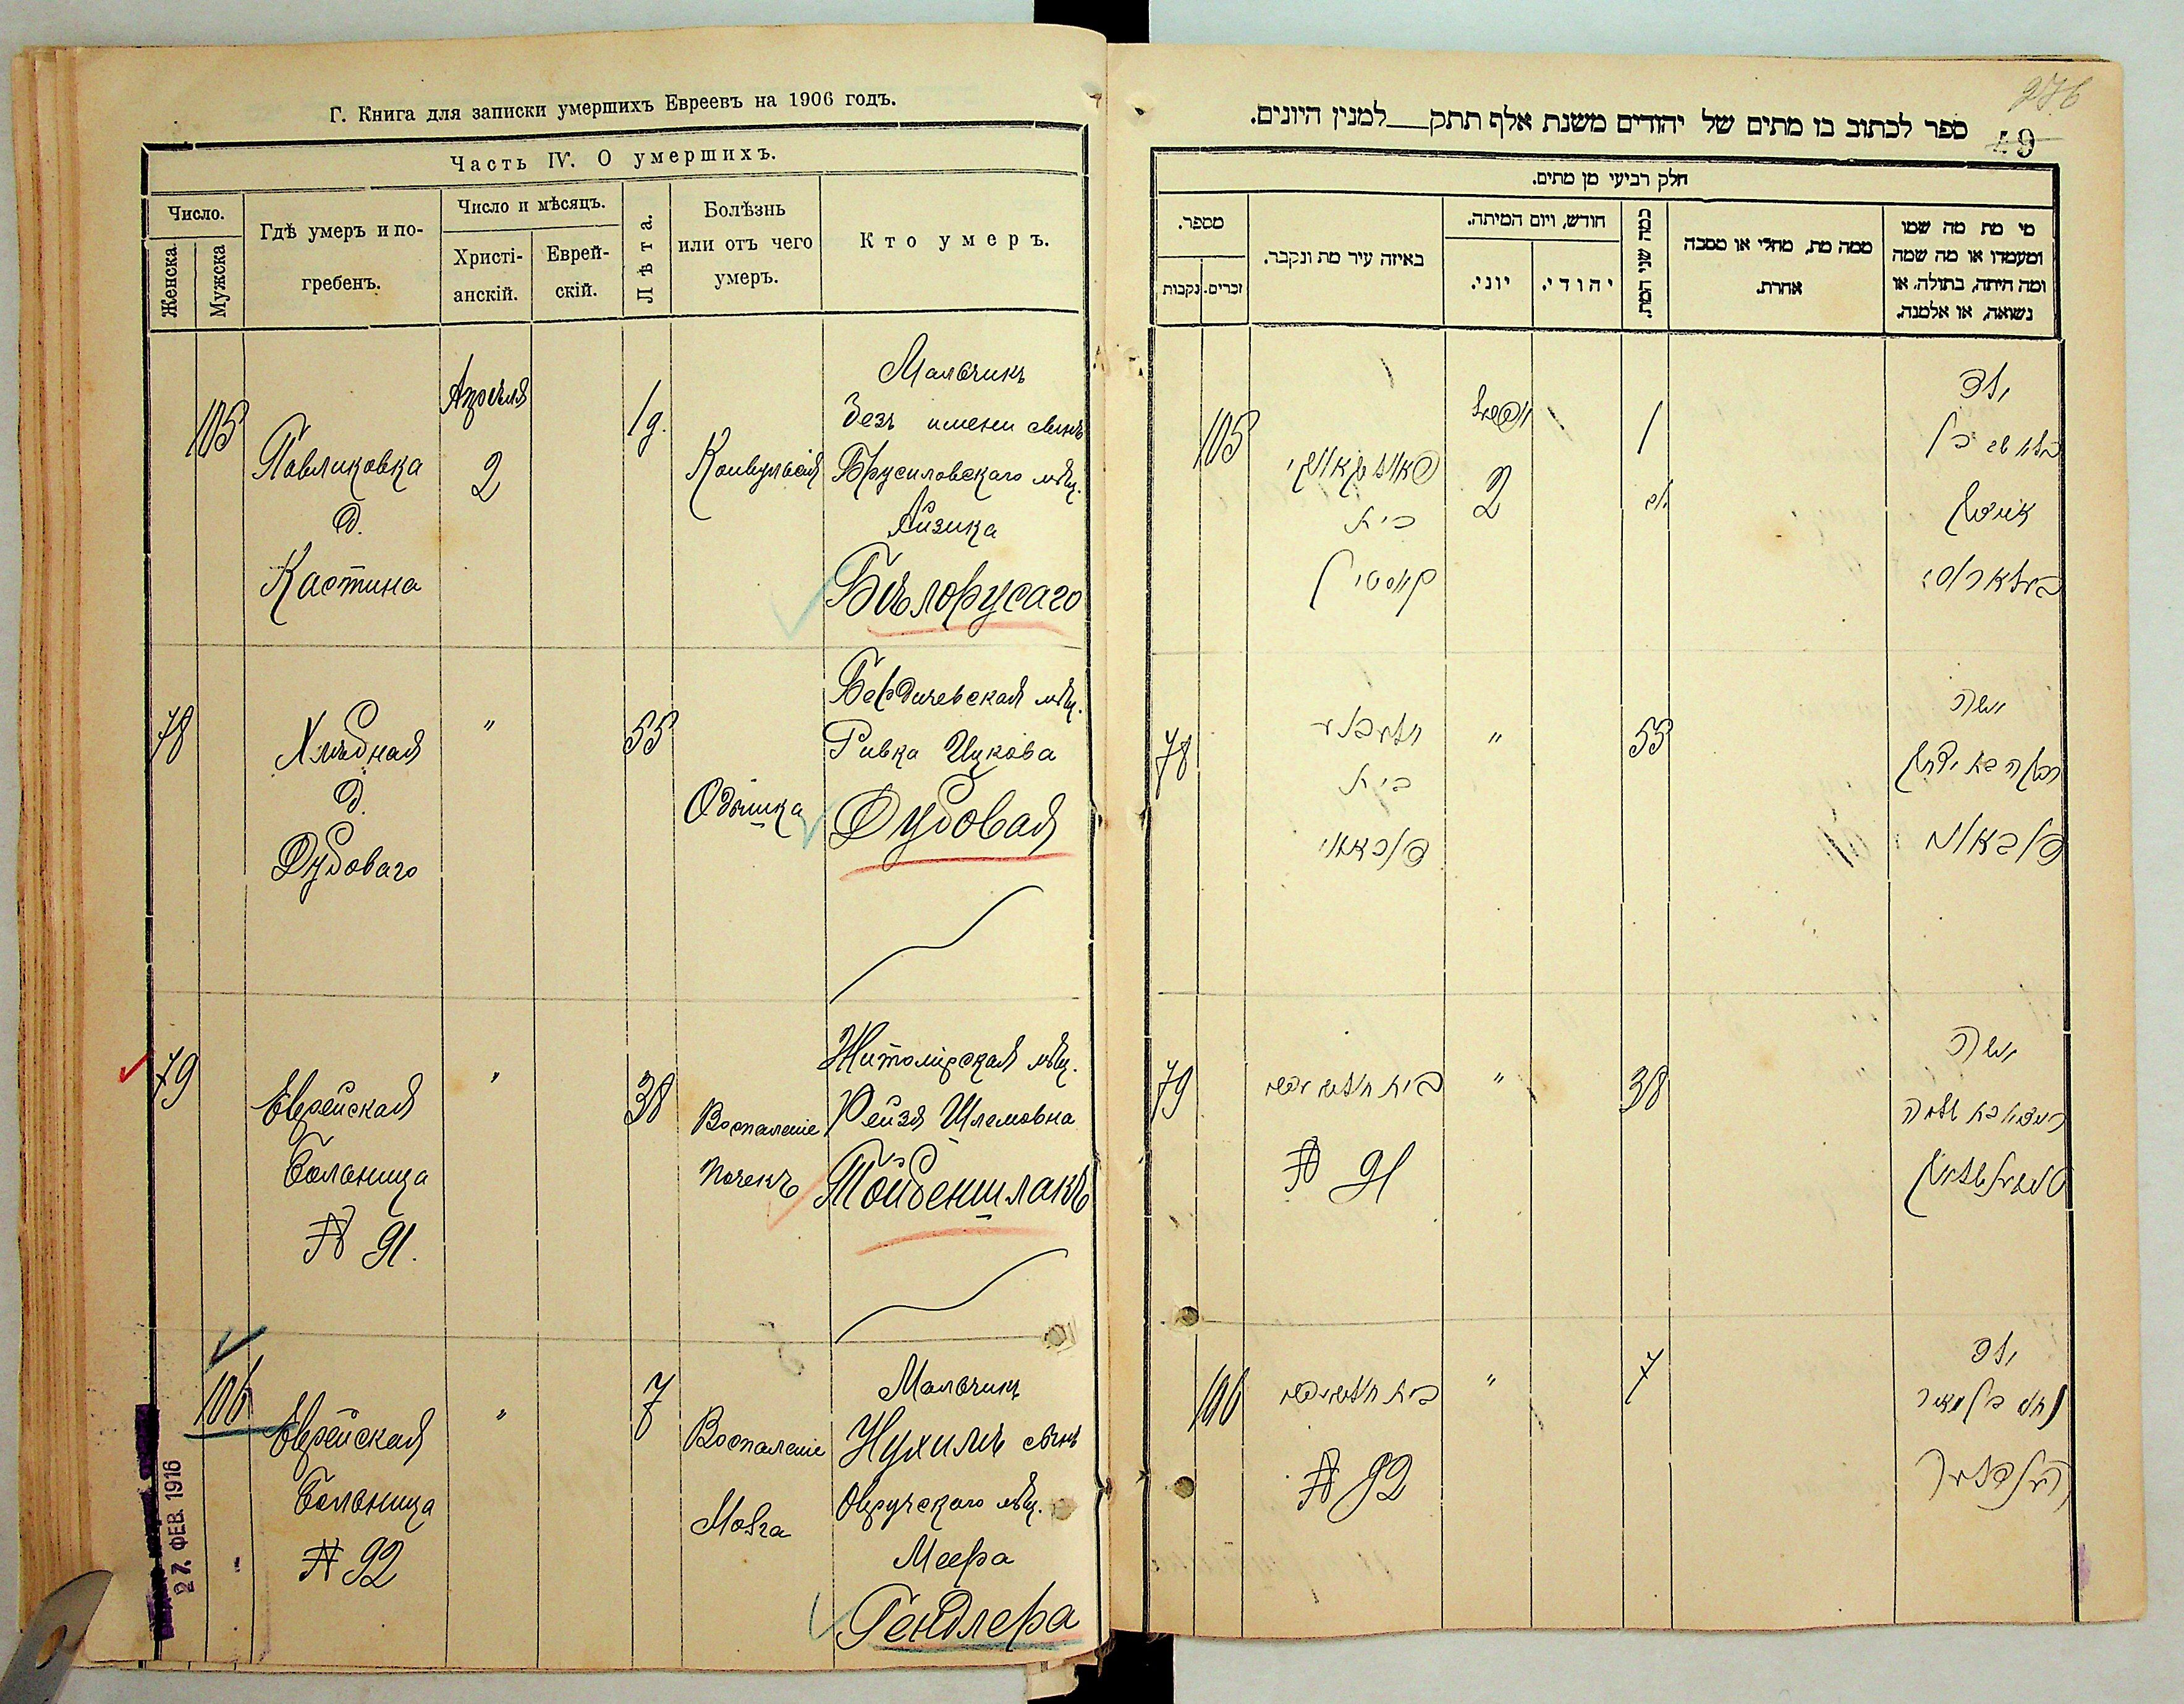 Г. Книга для записки умершихъ Евреевъ на 1906 годъ.
Часть IV. О умершихъ.
Число.
Женска
Мужска
Гдѣ умеръ и по-
гребенъ.
Число и мѣсяцъ.
Христі-
анскій.
Еврей-
скій.
Лѣта.
Болѣзнь
или отъ чего
умеръ.
Кто умеръ.
105
Павликовка
д.
Кастина
Апрѣля
2
1 д.
Конвульсія
Мальчикъ
безъ имени сынъ
Брусиловскаго мѣщ.
Айзика
Бѣлорусаго
78
Хлѣбная
д.
Дубоваго
"
55
Одышка
Бердичевская мѣщ.
Ривка Ицкова
Дубовая
79
Еврейская
больница
№ 91.
"
38
Воспаленіе
почекъ
Житомірская мѣщ.
Рейзя Шлемовна
Тойбеншлакъ
106
Еврейская
больница
№ 92
"
7
Воспаленіе
Мозга
Мальчикъ
Нухимъ сынъ
Овручскаго мѣщ.
Меера
Гендлера
27. ФЕВ. 1916
276
49
ספר לכתוב בו מתים של יהודים משנת אלף תתק___למנין היונים.
חלק רביעי מן מתים.
מספר.
נקבות
זכרים.
באיזה עיר מת ונקבר.
חודש, ויום המיתה.
יוני.
יהודי.
כמה שני המת.
ממה מת, מחלי או מסבה
אחרת.
מי מת מה שמו
ומעמדו או מה שמה
ומה היתה, בתולה, או
נשואה, או אלמנה.
105
בית
קאסטין
אפריל
2
1
ילד
אייזיק
78
בית
"
55
אשה
רבקה בת יצחק
79
№ 91
"
38
אשה
106
№ 92
"
7
ילד
הענדלער